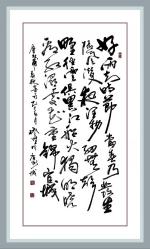 好雨知時節當春乃發生
隨風潛入夜潤物細無聲
野徑雲俱黑江船火獨明曉
看紅濕處花重錦官城